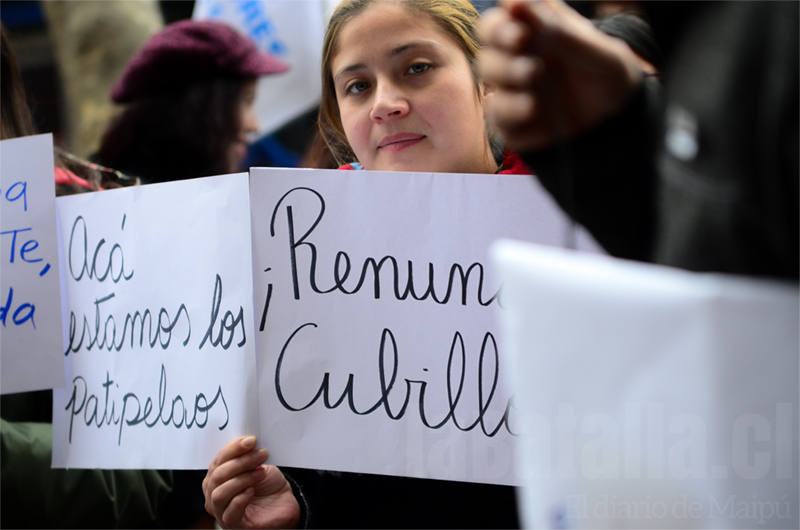 a
Te,
da
Acá
estamos los
Patipelaos
¡Renun
Cubill
labatalla.cl
El diario de Maipú